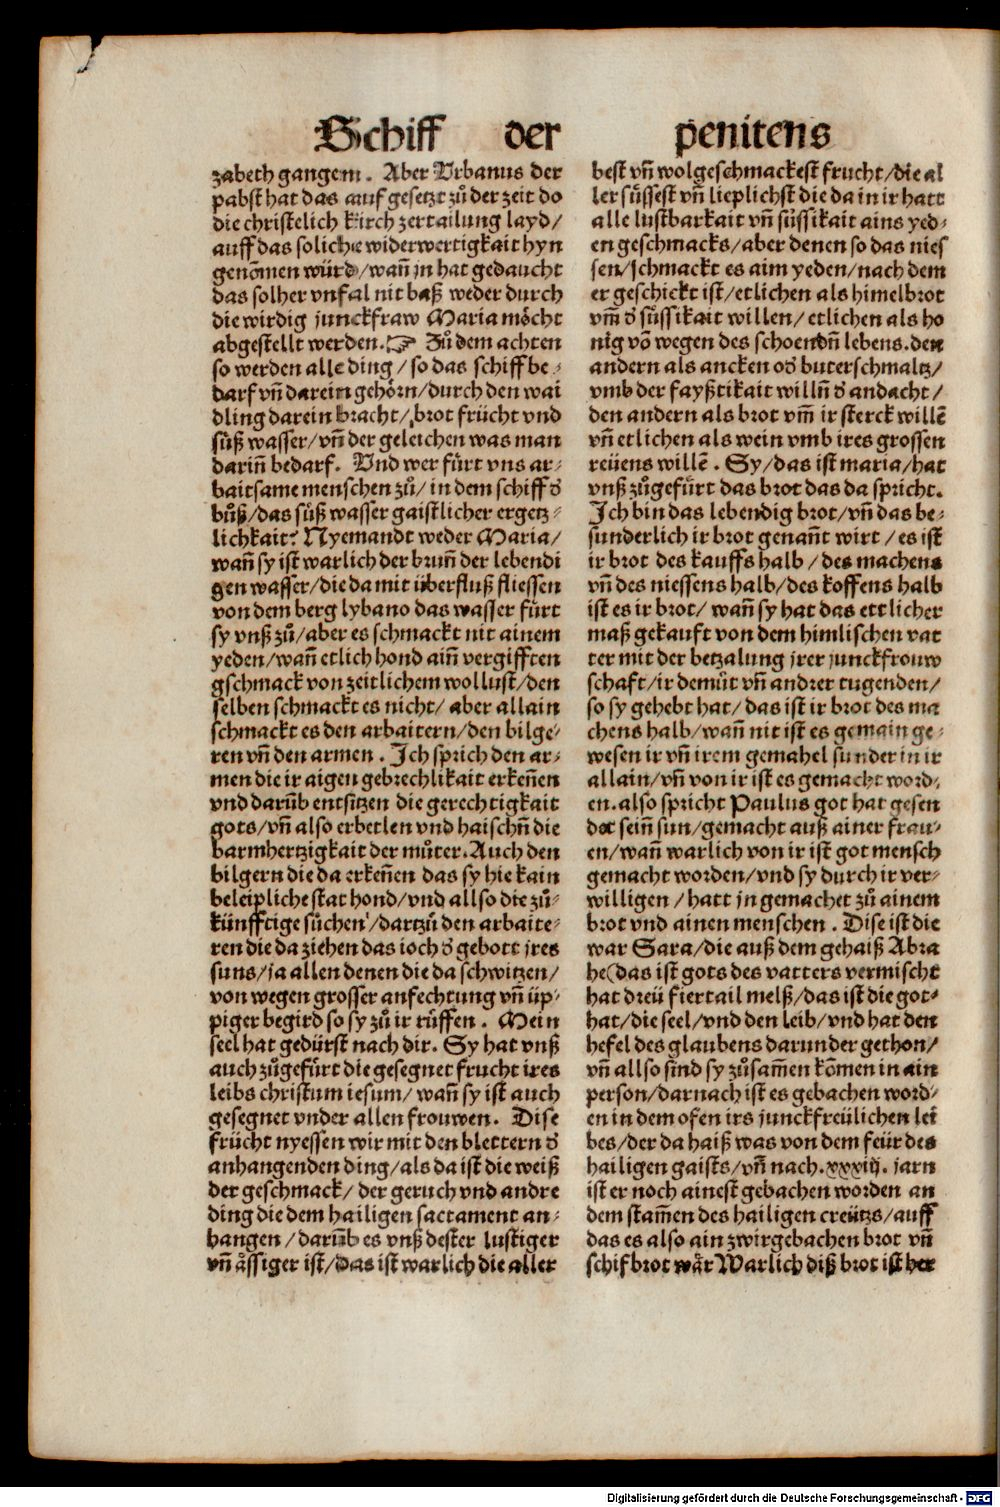 Schiff der penitens
zabeth gangem. Aber Vrbanus der
pabst hat das auf gesetzt zů der zeit do
die christelich kirch zertailung layd/
auff das soliche widerwertigkait hyn
genōmen würd/wañ jn hat gedaucht
das solher vnfal nit baß weder durch
die wirdig junckfraw Maria möcht
abgestellt werden.☞ Zů dem achten
so werden alle ding/so das schiff be⸗
darf vñ darein gehörn/durch den wai
dling darein bracht/brot frücht vnd
süß wasser/vñ der geleichen was man
dariñ bedarf. Vnd wer fürt vns ar⸗
baitsame menschen zů/in dem schiff ď
bůß/das süß wasser gaistlicher ergetz⸗
lichkait? Nyemandt weder Maria/
wañ sy ist warlich der bruñ der lebendi
gen wasser/die da mit überfluß fliessen
von dem berg lybano das wasser fürt
sy vnß zů/aber es schmackt nit ainem
yeden/wañ etlich hond aiñ vergifften
gschmack von zeitlichem wollust/den
selben schmackt es nicht/aber allain
schmackt es den arbaitern/den bilge⸗
ren vñ den armen. Ich sprich den ar⸗
men die ir aigen gebrechlikait erkeñen
vnd darūb entsitzen die gerechtigkait
gots/vñ also erbetlen vnd haischñ die
barmhertzigkait der můter. Auch den
bilgern die da erkeñen das sy hie kain
beleipliche stat hond/vnd allso die zů⸗
künfftige sůchen/dartzů den arbaite⸗
ren die da ziehen das ioch ď gebott jres
suns/ja allen denen die da schwitzen/
von wegen grosser anfechtung vñ üp⸗
piger begird so sy zů ir růffen. Mein
seel hat gedürst nach dir. Sy hat vnß
auch zůgefürt die gesegnet frucht ires
leibs christum iesum/wañ sy ist auch
gesegnet vnder allen frouwen. Dise
frücht nyessen wir mit den blettern ď
anhangenden ding/als da ist die weiß
der geschmack/der geruch vnd andre
ding die dem hailigen sacrament an⸗
hangen/darūb es vnß dester lustiger
vñ ässiger ist/das ist warlich die aller
best vñ wolgeschmackest frucht/die al
ler süssest vñ lieplichst die da in ir hatt
alle lustbarkait vñ süssikait ains yed⸗
en geschmacks/aber denen so das nies
sen/schmackt es aim yeden/nach dem
er geschickt ist/etlichen als himelbrot
vm̄ ď süssikait willen/etlichen als ho
nig vō wegen des schoendñ lebens. den
andern als ancken oď buterschmaltz/
vmb der fayßtikait willñ ď andacht/
den andern als brot vm̄ ir sterck willē
vñ etlichen als wein vmb ires grossen
reüens willē. Sy/das ist maria/hat
vnß zůgefürt das brot das da spricht.
Ich bin das lebendig brot/vñ das be⸗
sunderlich ir brot genañt wirt/es ist
ir brot des kauffs halb/des machens
vñ des niessens halb/des koffens halb
ist es ir brot/wañ sy hat das ettlicher
maß gekauft von dem himlischen vat
ter mit der betzalung jrer junckfrouw
schaft/ir demüt vñ andrer tugenden/
so sy gehebt hat/das ist ir brot des ma
chens halb/wañ nit ist es gemain ge⸗
wesen ir vñ irem gemahel sunder in ir
allain/vñ von ir ist es gemacht word⸗
en. also spricht Paulus got hat gesen
det seiñ sun/gemacht auß ainer frau⸗
en/wañ warlich von ir ist got mensch
gemacht worden/vnd sy durch ir ver⸗
willigen/hatt jn gemachet zů ainem
brot vnd ainen menschen. Dise ist die
war Sara/die auß dem gehaiß Abra
he(das ist gots des vatters vermischt
hat dreü fiertail melß/das ist die got⸗
hat/die seel/vnd den leib/vnd hat den
hefel des glaubens darunder gethon/
vñ allso sind sy zůsam̄en kōmen in ain
person/darnach ist es gebachen word⸗
en in dem ofen irs junckfreülichen lei
bes/der da haiß was von dem feür des
hailigen gaists/vñ nach.xxxiij. jarn
ist er noch ainest gebachen worden an
dem stam̄en des hailigen creütz/auff
das es also ain zwirgebachen brot vñ
schifbrot wär Warlich diß brot ist her
Digitalisierung gefördert durch die Deutsche Forschungsgemeinschaft - DFG